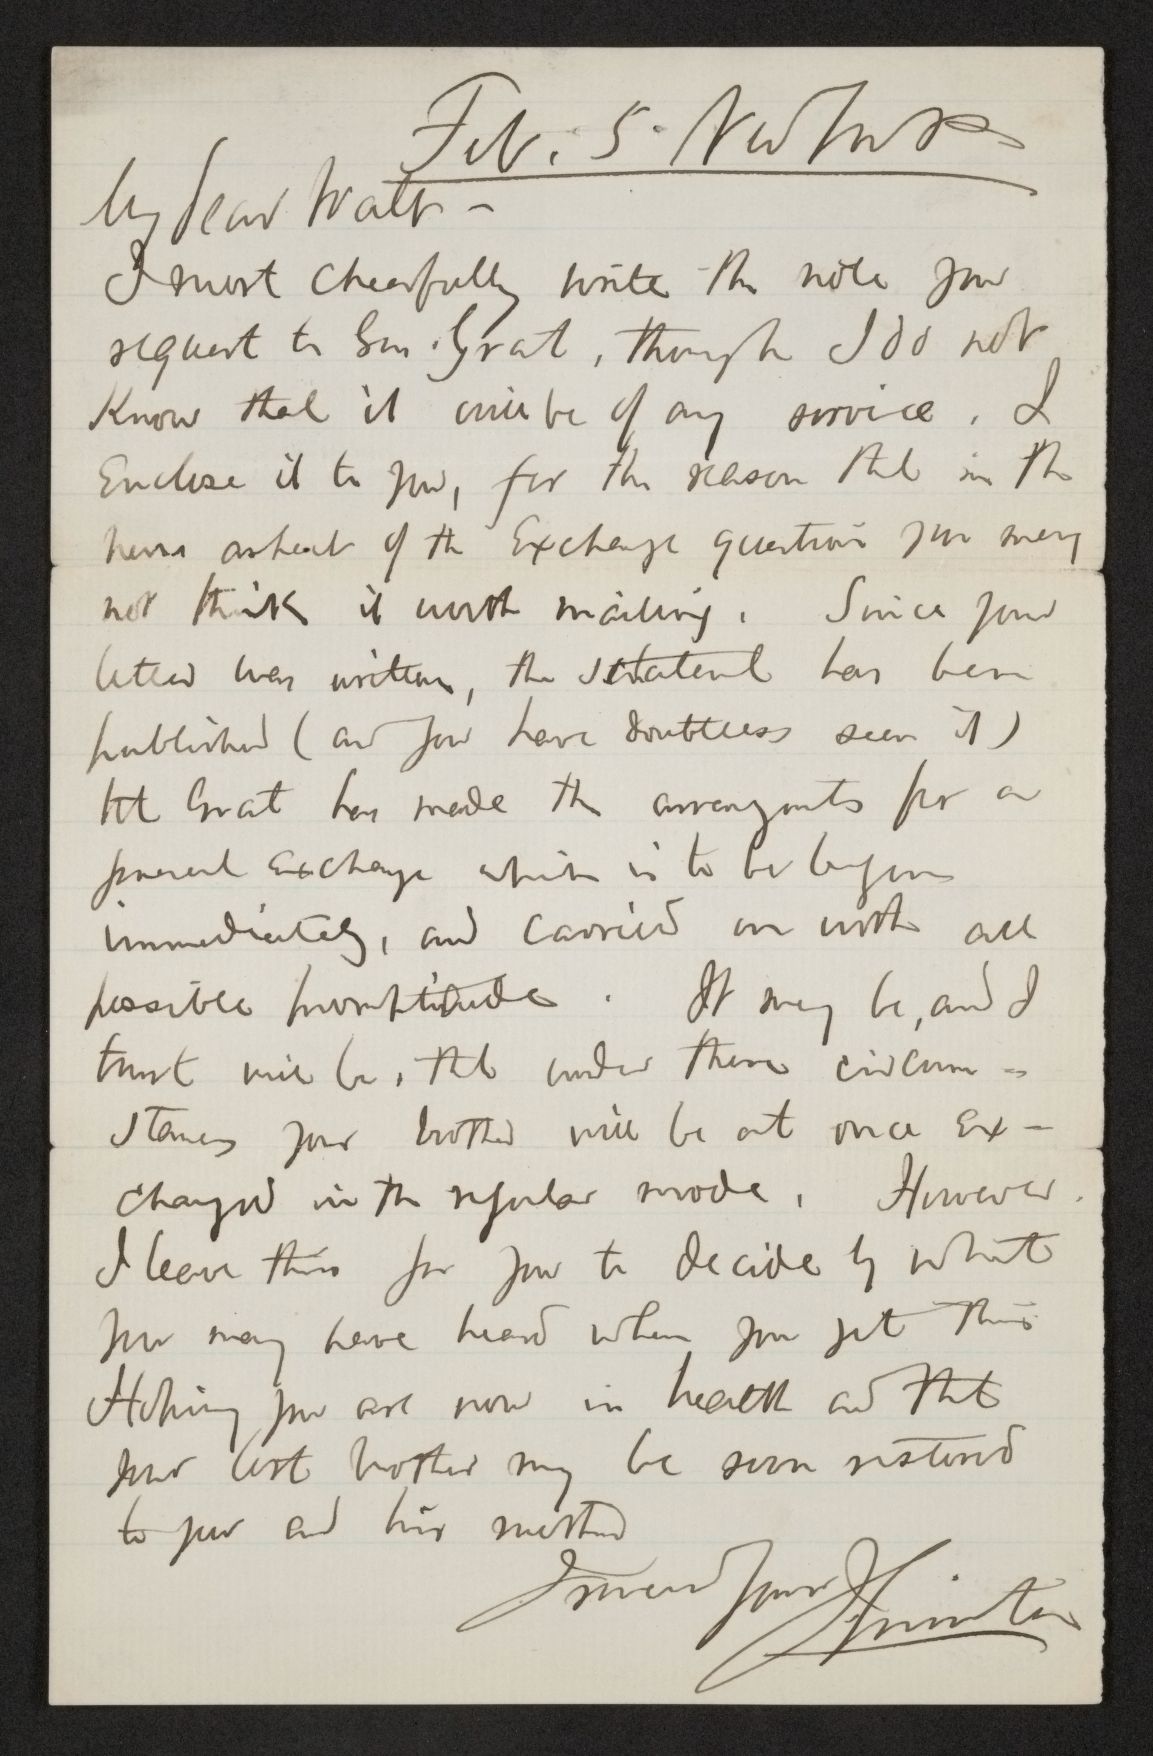 Feb. 5. New York
My dear Walt—
I most cheerfully write the note you
request to Gen. Grant, though I do not
know that it will be of any service. I
enclose it to you, for the reason that in the
new aspect of the Exchange question you may
not think it worth mailing. Since your
letter was written, the statement has been
published (and you have doubtless seen it)
that Grant has made the arrangements for a
general exchange which is to be begun
immediately, and carried on with all
possible promptitude. It may be, and I
trust will be, that under these circum-
stances your brother will be at once ex-
changed in the regular mode. However
I leave this for you to decide by what
you may have heard when you get this
Hoping you are now in health and that
your lost brother may be soon restored
to you and his mother
I remain yours
Swinton